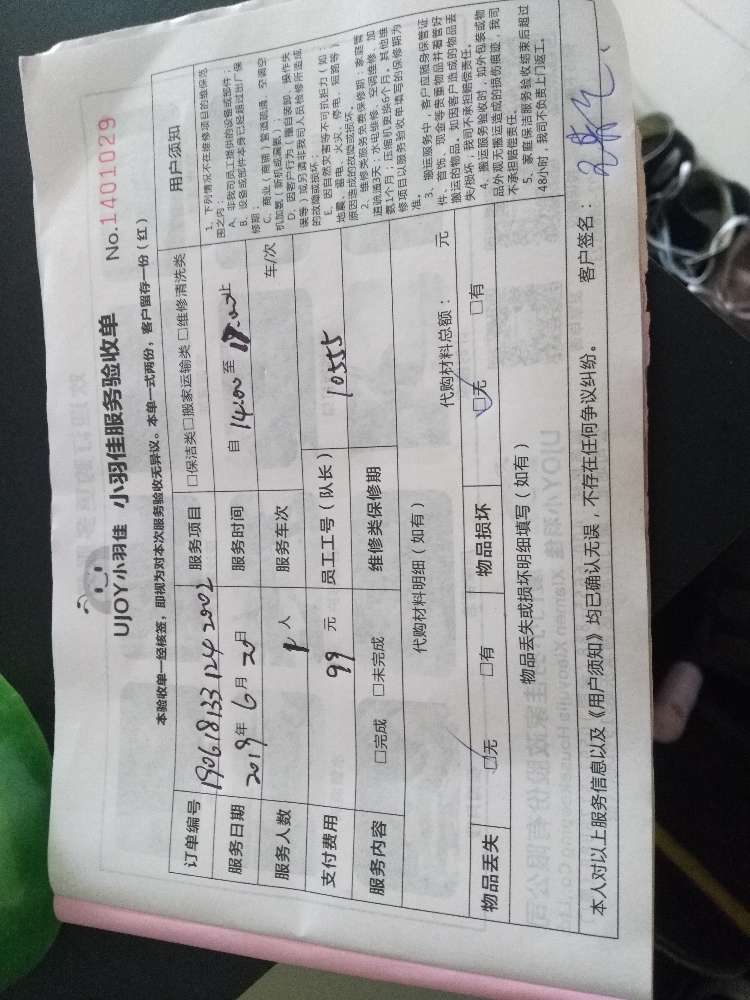 UJOY小羽佳 小羽佳服务验收单 No.1401029
本验收单一经核签，即视为对本次服务验收无异议。本单一式两份，客户留存一份（红）
订单编号 1906181331242002 服务项目 □保洁类□搬家运输类 □维修清洗类
服务日期 2019年6月20日 服务时间 自 14:00 至 17:00 止
服务人数 1 人 服务车次 车/次
支付费用 99 元 员工工号（队长） 10555
服务内容 □完成 □未完成 维修类保修期
代购材料明细（如有） 代购材料总额： 元
物品丢失 □无 □有 物品损坏 □无 □有
物品丢失或损坏明细填写（如有）
用户须知
1、下列情况不在维修项目的维保范
围之内：
A、非我司员工提供的设备或部件；
B、设备或部件本身已经超过出厂保
修期；
C、商业（商铺）管道疏通、空调空
机加氨（新机或漏氨）；
D、因客户行为（擅自装卸、操作失
误等）或另请非我司人员检修所造成
的故障或损坏；
E、因自然灾害等不可抗拒力（如：
地震、雷电、火灾、停电、短路等）
原因造成的故障或损坏。
2、维修类服务免费保修期：家庭管
道疏通3天；水电维修、空调维修、加
氨1个月；压缩机更换6个月。其他维
修项目以服务验收单填写的保修期为
准。
3、搬运服务中，客户应随身保管证
件、首饰、现金等贵重物品并看管好
搬运的物品。如因客户造成的物品丢
失/损坏，我司不承担赔偿责任。
4、搬运服务验收时，如外包装或物
品外观无搬运造成的损伤痕迹，我司
不承担赔偿责任。
5、家庭保洁服务验收结束后超过
48小时，我司不负责上门返工。
本人对以上服务信息以及《用户须知》均已确认无误，不存在任何争议纠纷。 客户签名：